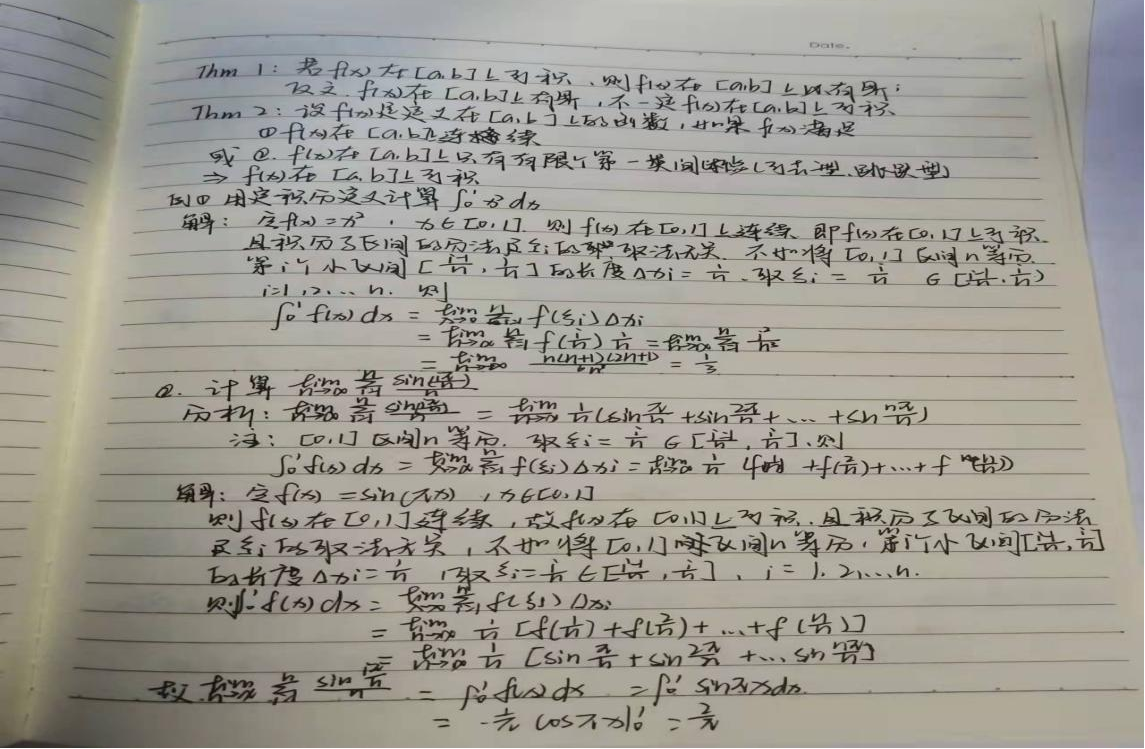 Date.
Thm 1: 若f(x)在[a,b]上可积,则f(x)在[a,b]上必有界;
反之,f(x)在[a,b]上有界,不一定f(x)在[a,b]上可积
Thm 2: 设f(x)是定义在[a,b]上的函数,如果f(x)满足
① f(x)在[a,b]上连续
或 ②. f(x)在[a,b]上只有有限个第一类间断点(可去型、跳跃型)
⇒ f(x)在[a,b]上可积
例① 用定积分定义计算∫₀¹x²dx
解: 令f(x)=x², x∈[0,1]. 则f(x)在[0,1]上连续 即f(x)在[0,1]上可积.
且积分与区间的分法及ξi的取法无关. 不妨将[0,1]区间n等分.
第i个小区间[(i-1)/n, i/n]的长度Δxi=1/n. 取ξi=i/n ∈[(i-1)/n, i/n)
i=1,2,...n. 则
∫₀¹f(x)dx = lim(λ→0) Σ(i=1→n) f(ξi)Δxi
= lim(n→∞) Σ(i=1→n) f(i/n) 1/n = lim(n→∞) Σ(i=1→n) i²/n³
= lim(n→∞) n(n+1)(2n+1)/6n³ = 1/3
②. 计算 lim(n→∞) Σ(i=1→n) sin(iπ/n)/n
分析: lim(n→∞) Σ(i=1→n) sin(iπ/n)/n = lim(n→∞) 1/n(sin π/n + sin 2π/n + ... + sin nπ/n)
注: [0,1]区间n等分. 取ξi=i/n ∈[(i-1)/n, i/n].则
∫₀¹f(x)dx = lim(λ→0) Σ(i=1→n) f(ξi)Δxi = lim(n→∞) 1/n (f(1/n)+f(2/n)+...+f(n/n))
解: 令f(x)=sin(πx), x∈[0,1]
则f(x)在[0,1]连续,故f(x)在[0,1]上可积.且积分与区间的分法
及ξi的取法无关,不妨将[0,1]区间n等分,第i个小区间[(i-1)/n, i/n]
的长度Δxi=1/n,取ξi=i/n∈[(i-1)/n, i/n], i=1,2,...,n.
则∫₀¹f(x)dx = lim(λ→0) Σ(i=1→n) f(ξi)Δxi
= lim(n→∞) 1/n [f(1/n)+f(2/n)+...+f(n/n)]
= lim(n→∞) 1/n [sin π/n + sin 2π/n + ... sin nπ/n]
故 lim(n→∞) Σ(i=1→n) sin(iπ/n)/n = ∫₀¹f(x)dx = ∫₀¹sinπxdx.
= -1/π cosπx|₀¹ = 2/π